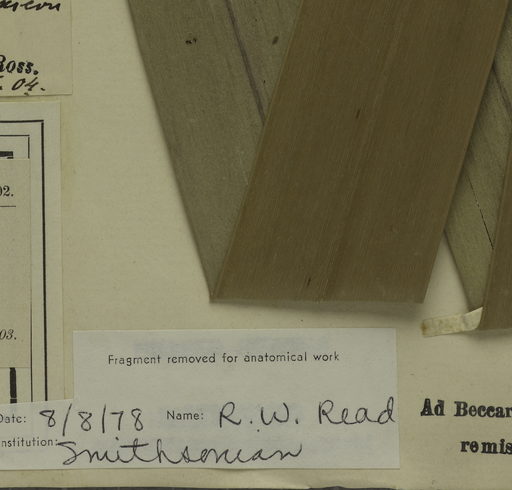 Ross.
04.
02.
03.
Fragment removed for anatomical work
Date: 8/8/78 Name: R. W. Read
Institution: Smithsonian
Ad Beccar
remis